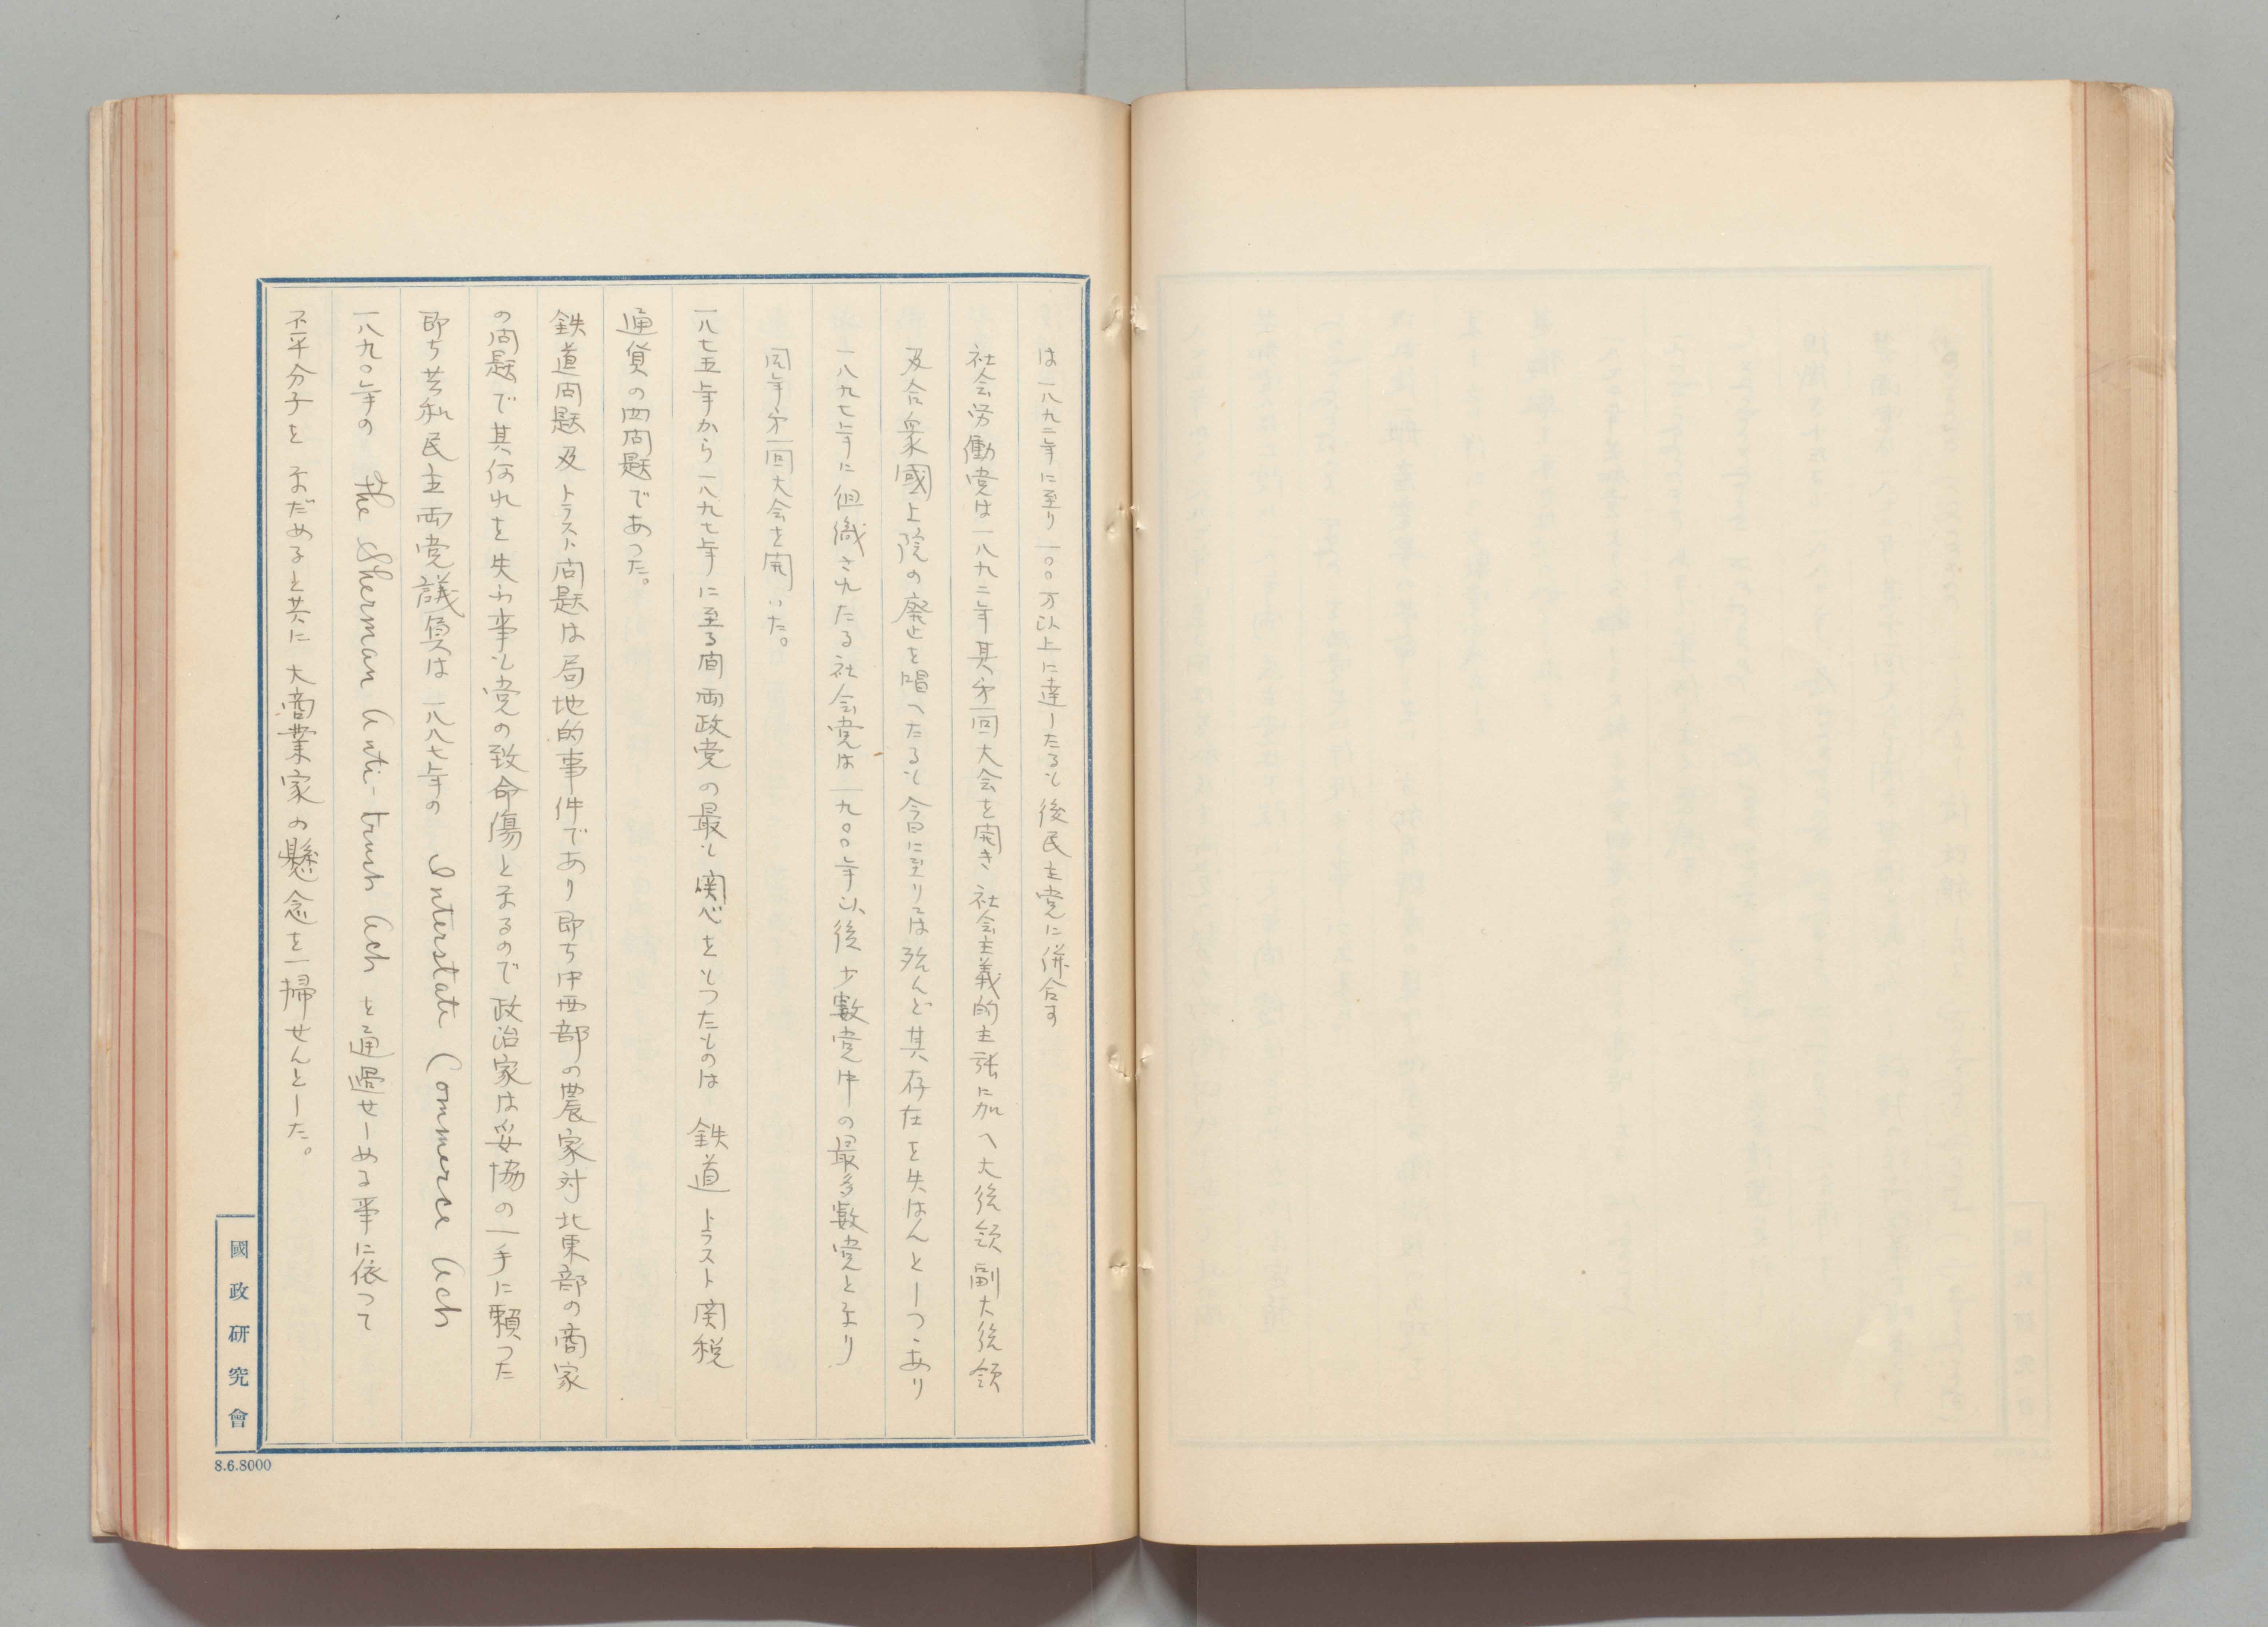 は一八九二年に至り一〇〇万以上に達したるも後民主党に併合す
社会労働党は一八九二年其第一回大会を開き社会主義的主張に加へ大統領副大統領
及合衆國上院の廃止を唱へたるも今日に至りては殆んど其存在を失はんとしつゝあり
一八九七年に組織されたる社会党は一九〇〇年以後少数党中の最多数党となり
同年第一回大会を開いた。
一八七五年から一八九七年に至る間両政党の最も関心をもつたものは 鉄道 トラスト 関税
通貨の四問題であつた。
鉄道問題及トラスト問題は局地的事件であり即ち中西部の農家対北東部の商家
の問題で其何れを失ふ事も党の致命傷となるので政治家は妥協の一手に頼つた
即ち共和民主両党議員は一八八七年の Interstate Commerce Act
一八九〇年の the Sherman Anti-trust Act を通過せしめる事に依つて
不平分子をなだめると共に大商業家の懸念を一掃せんとした。
國政研究會
8.6.8000